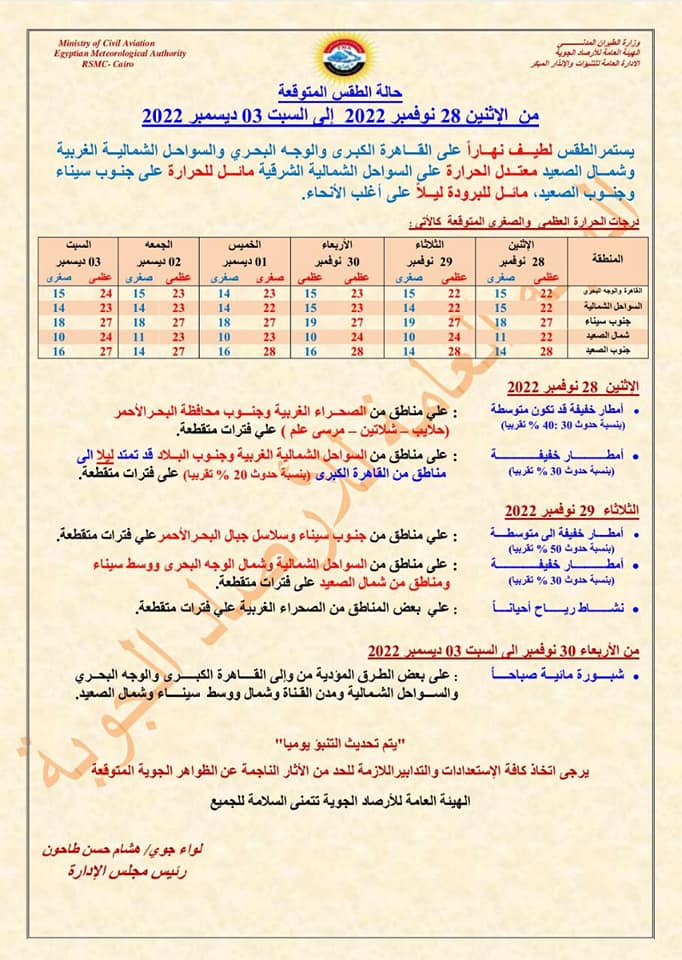 Ministry of Civil Aviation
Egyptian Meteorological Authority
RSMC- Cairo
وزارة الطيران المدنـــــي
الهيئة العامة للأرصاد الجوية
الادارة العامة للتنبؤات والإنذار المبكر
حالة الطقس المتوقعة
من الإثنين 28 نوفمبر 2022 إلى السبت 03 ديسمبر 2022
يستمرالطقس لطيف نهاراً على القاهرة الكبرى والوجه البحري والسواحل الشمالية الغربية
وشمال الصعيد معتدل الحرارة على السواحل الشمالية الشرقية مائل للحرارة على جنوب سيناء
وجنوب الصعيد، مائل للبرودة ليلاً على أغلب الأنحاء.
درجات الحرارة العظمى والصغرى المتوقعة كالأتى:
المنطقة الإثنين الثلاثاء الأربعاء الخميس الجمعه السبت
28 نوفمبر 29 نوفمبر 30 نوفمبر 01 ديسمبر 02 ديسمبر 03 ديسمبر
عظمى صغرى عظمى صغرى عظمى صغرى عظمى صغرى عظمى صغرى عظمى صغرى
القاهرة والوجه البحرى 22 15 22 15 23 15 23 14 23 15 24 15
السواحل الشمالية 22 15 22 14 23 15 22 14 23 14 23 14
جنوب سيناء 27 18 27 19 27 19 27 18 27 18 27 18
شمال الصعيد 22 11 24 10 23 10 24 10 23 11 24 10
جنوب الصعيد 28 14 28 14 28 16 28 16 27 14 27 16
الإثنين 28 نوفمبر 2022
• أمطار خفيفة قد تكون متوسطة : علي مناطق من الصحراء الغربية وجنوب محافظة البحرالأحمر
(بنسبة حدوث 30 :40 % تقريبا) (حلايب – شلاتين – مرسى علم ) علي فترات متقطعة.
• أمطـــــار خفيفـــــــة : علي مناطق من السواحل الشمالية الغربية وجنوب البلاد قد تمتد ليلا الى
(بنسبة حدوث 30 % تقريبا) مناطق من القاهرة الكبرى (بنسبة حدوث 20 % تقريبا) على فترات متقطعة.
الثلاثاء 29 نوفمبر 2022
• أمطار خفيفة الى متوسطة : علي مناطق من جنوب سيناء وسلاسل جبال البحرالأحمرعلي فترات متقطعة.
(بنسبة حدوث 50 % تقريبا)
• أمطـــــار خفيفـــــــة : على مناطق من السواحل الشمالية وشمال الوجه البحرى ووسط سيناء
(بنسبة حدوث 30 % تقريبا) ومناطق من شمال الصعيد على فترات متقطعة.
• نشـــاط ريـــاح أحيانـــاً : علي بعض المناطق من الصحراء الغربية علي فترات متقطعة.
من الأربعاء 30 نوفمبر الى السبت 03 ديسمبر 2022
• شبـــورة مائيـة صباحــاً : على بعض الطرق المؤدية من وإلى القــاهرة الكبــرى والوجه البحــري
والســواحل الشمـالية ومدن القنـاة وشمال ووسط سينــاء وشمال الصعيد.
"يتم تحديث التنبؤ يوميا"
يرجى اتخاذ كافة الإستعدادات والتدابيراللازمة للحد من الأثار الناجمة عن الظواهر الجوية المتوقعة
الهيئة العامة للأرصاد الجوية تتمنى السلامة للجميع
لواء جوي/ هشام حسن طاحون
رئيس مجلس الإدارة